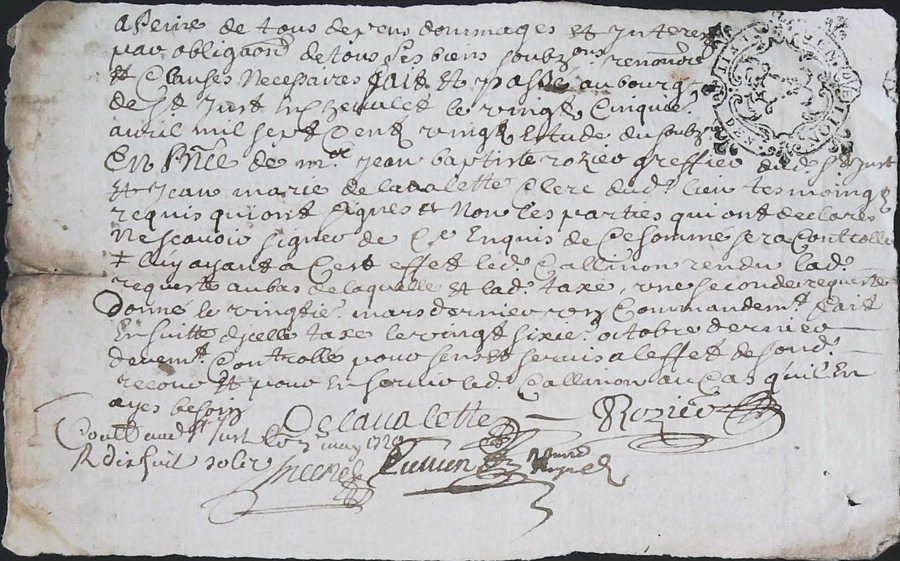 a peine de tous depens dommages et Interes
par obligaon.d de tous ses biens soubz.ons renonon.s
et Clauses Necessaires fait et passé au bourg
de St. Just En chevalet le vingt Cinquie.
avril mil sept Cent vingt Estude du soubz.
En Pnce de mre. Jean baptiste rozier greffier dud. St Just
Et Jean marie de lavalette Clerc dud. lieu tesmoingz
requis qui ont signes et Non les parties qui ont declares
Ne scavoir signer de Ce Enquis de Ce sommé sera Controllé
+ luy ayant a Cest effet led. Callinon rendu lad.
requete au bas de laquelle Et lad. taxe, une seconde requete
Donné le vingtie. mars dernier Commandemt. fait
Ensuitte dicelle taxe le vingt sixie. octobre dernier
devemt. Controllé pour servir a leffet de sond.
recour Et pour En servir led. Callinon au Cas qu'il En
ayes besoin
Delavalette Rozier
Contlé aud. St Just le 3e may 1720
R dixhuit solz